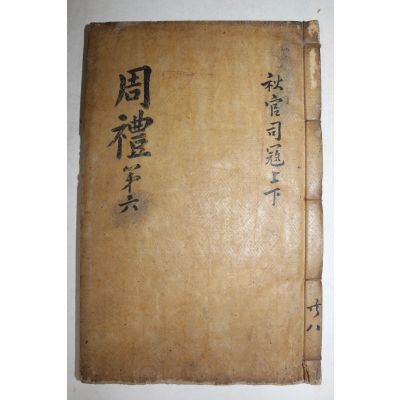 秋官司寇上下
周禮
第六
共八